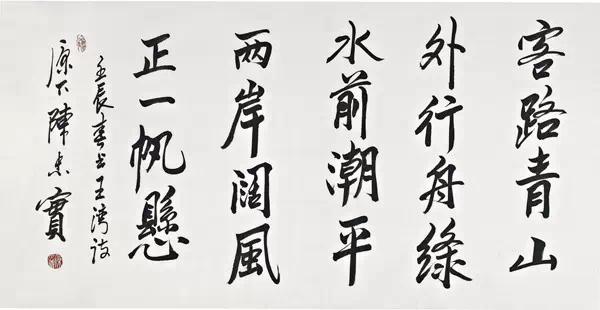 客路青山
外行舟綠
水前潮平
两岸阔風
正一帆懸
壬辰春书王湾诗
原下陳忠實